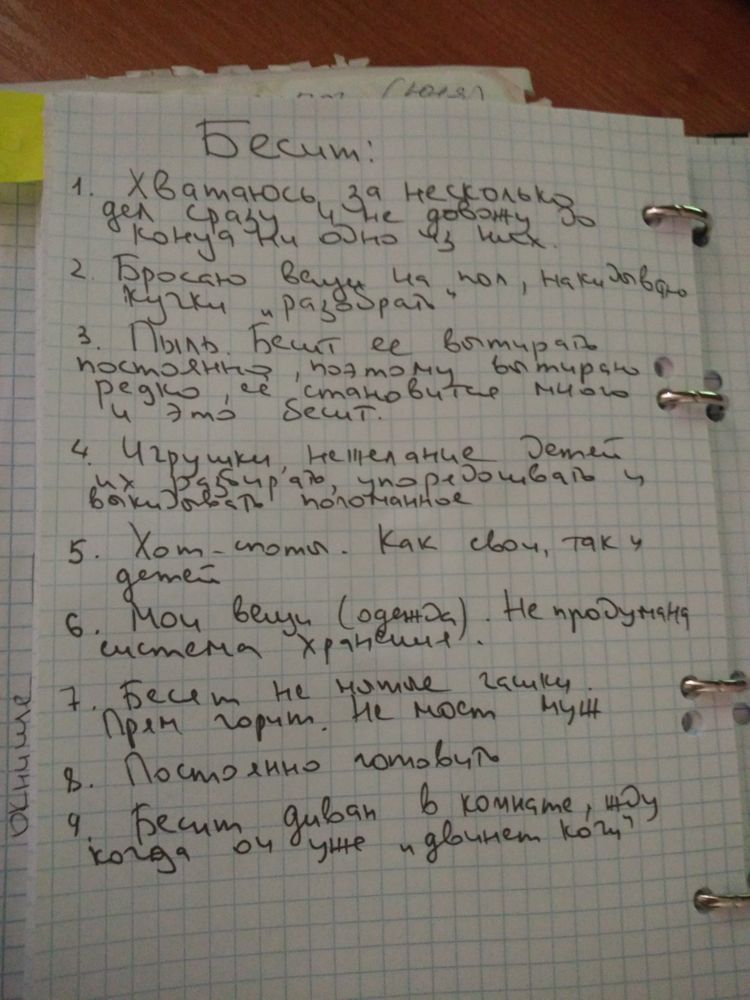 Бесит:
1. Хватаюсь за несколько
дел сразу и не довожу до
конца ни одно из них.
2. Бросаю вещи на пол, накидываю
кучки „разобрать"
3. Пыль. Бесит ее вытирать
постоянно, поэтому вытираю
редко, ее становится много
и это бесит.
4. Игрушки, нежелание детей
их разбирать, упорядочивать и
выкидывать поломанное
5. Хот-споты. Как свои, так и
детей
6. Мои вещи (одежда). Не продумана
система хранения.
7. Бесят не мытые чашки.
Прям горит. Не моет муж
8. Постоянно готовить
9. Бесит диван в комнате, жду
когда он уже „двинет кони"